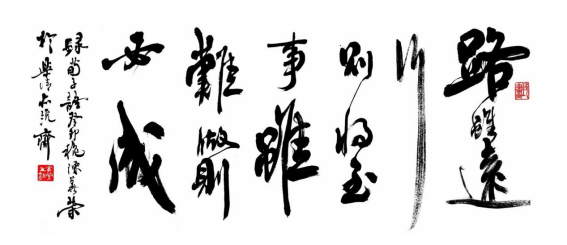 路雖遠
行
則將至
事雖
難做則
必成
錄荀子語癸卯秋陳
於樂清齋